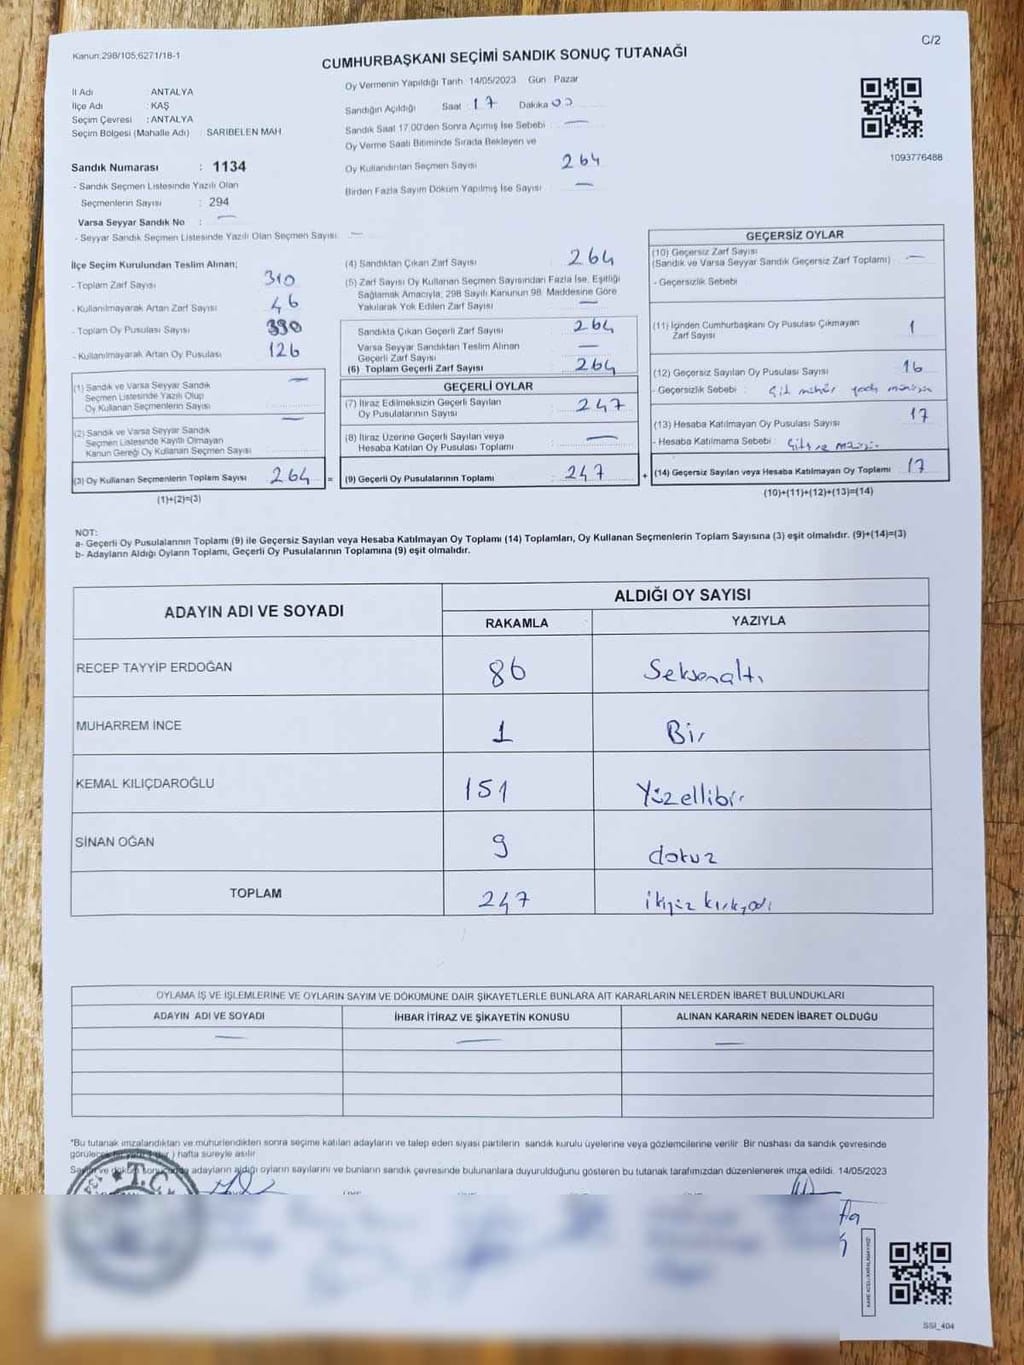 Kanun:298/105,6271/18-1
C/2
CUMHURBAŞKANI SEÇİMİ SANDIK SONUÇ TUTANAĞI
İl Adı : ANTALYA
İlçe Adı : KAŞ
Seçim Çevresi : ANTALYA
Seçim Bölgesi (Mahalle Adı) : SARIBELEN MAH
Sandık Numarası : 1134
- Sandık Seçmen Listesinde Yazılı Olan
Seçmenlerin Sayısı : 294
Varsa Seyyar Sandık No : —
- Seyyar Sandık Seçmen Listesinde Yazılı Olan Seçmen Sayısı: —
Oy Vermenin Yapıldığı Tarih 14/05/2023 Gün Pazar
Sandığın Açıldığı Saat : 17 Dakika 00
Sandık Saat 17.00'den Sonra Açımış İse Sebebi —
Oy Verme Saati Bitiminde Sırada Bekleyen ve
Oy Kullandırılan Seçmen Sayısı 264
Birden Fazla Sayım Döküm Yapılmış İse Sayısı —
1093776488
İlçe Seçim Kurulundan Teslim Alınan;
- Toplam Zarf Sayısı 310
- Kullanılmayarak Artan Zarf Sayısı 46
- Toplam Oy Pusulası Sayısı 390
- Kullanılmayarak Artan Oy Pusulası 126
(1) Sandık ve Varsa Seyyar Sandık
Seçmen Listesinde Yazılı Olup
Oy Kullanan Seçmenlerin Sayısı —
(2) Sandık ve Varsa Seyyar Sandık
Seçmen Listesinde Kayıtlı Olmayan
Kanun Gereği Oy Kullanan Seçmen Sayısı —
(3) Oy Kullanan Seçmenlerin Toplam Sayısı 264 =
(1)+(2)=(3)
(4) Sandıktan Çıkan Zarf Sayısı 264
(5) Zarf Sayısı Oy Kullanan Seçmen Sayısından Fazla İse, Eşitliği
Sağlamak Amacıyla, 298 Sayılı Kanunun 98. Maddesine Göre
Yakılarak Yok Edilen Zarf Sayısı —
Sandıkta Çıkan Geçerli Zarf Sayısı 264
Varsa Seyyar Sandıktan Teslim Alınan
Geçerli Zarf Sayısı —
(6) Toplam Geçerli Zarf Sayısı 264
GEÇERLİ OYLAR
(7) İtiraz Edilmeksizin Geçerli Sayılan
Oy Pusulalarının Sayısı 247
(8) İtiraz Üzerine Geçerli Sayılan veya
Hesaba Katılan Oy Pusulası Toplamı —
(9) Geçerli Oy Pusulalarının Toplamı 247 +
GEÇERSİZ OYLAR
(10) Geçersiz Zarf Sayısı
(Sandık ve Varsa Seyyar Sandık Geçersiz Zarf Toplamı) —
- Geçersizlik Sebebi
(11) İçinden Cumhurbaşkanı Oy Pusulası Çıkmayan
Zarf Sayısı 1
(12) Geçersiz Sayılan Oy Pusulası Sayısı 16
- Geçersizlik Sebebi :
(13) Hesaba Katılmayan Oy Pusulası Sayısı 17
- Hesaba Katılmama Sebebi :
(14) Geçersiz Sayılan veya Hesaba Katılmayan Oy Toplamı 17
(10)+(11)+(12)+(13)=(14)
NOT:
a- Geçerli Oy Pusulalarının Toplamı (9) ile Geçersiz Sayılan veya Hesaba Katılmayan Oy Toplamı (14) Toplamları, Oy Kullanan Seçmenlerin Toplam Sayısına (3) eşit olmalıdır. (9)+(14)=(3)
b- Adayların Aldığı Oyların Toplamı, Geçerli Oy Pusulalarının Toplamına (9) eşit olmalıdır.
ADAYIN ADI VE SOYADI
ALDIĞI OY SAYISI
RAKAMLA YAZIYLA
RECEP TAYYİP ERDOĞAN 86 Seksenaltı
MUHARREM İNCE 1 Bir
KEMAL KILIÇDAROĞLU 151 Yüzellibir
SİNAN OĞAN 9 dokuz
TOPLAM 247 ikiyüz kırkyedi
OYLAMA İŞ VE İŞLEMLERİNE VE OYLARIN SAYIM VE DÖKÜMÜNE DAİR ŞİKAYETLERLE BUNLARA AİT KARARLARIN NELERDEN İBARET BULUNDUKLARI
ADAYIN ADI VE SOYADI İHBAR İTİRAZ VE ŞİKAYETİN KONUSU ALINAN KARARIN NEDEN İBARET OLDUĞU
— — —
*Bu tutanak imzalandıktan ve mühürlendikten sonra seçime katılan adayların ve talep eden siyasi partilerin sandık kurulu üyelerine veya gözlemcilerine verilir. Bir nüshası da sandık çevresinde
hafta süreyle asılır
adayların aldığı oyların sayılarını ve bunların sandık çevresinde bulunanlara duyurulduğunu gösteren bu tutanak tarafımızdan düzenlenerek imza edildi. 14/05/2023
T.C.
SSI_404